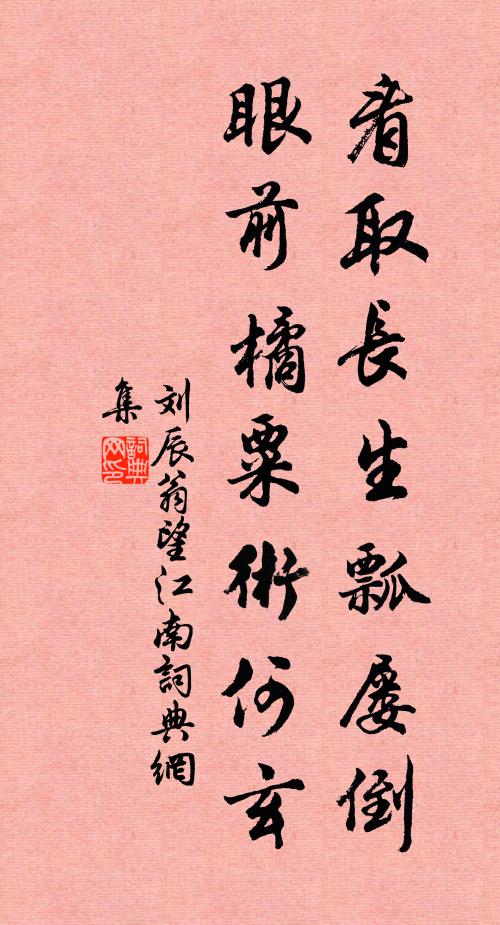 看取長生瓢屢倒
眼前橘粟術何玄
刘辰翁望江南詞典網
集
詞典
网印